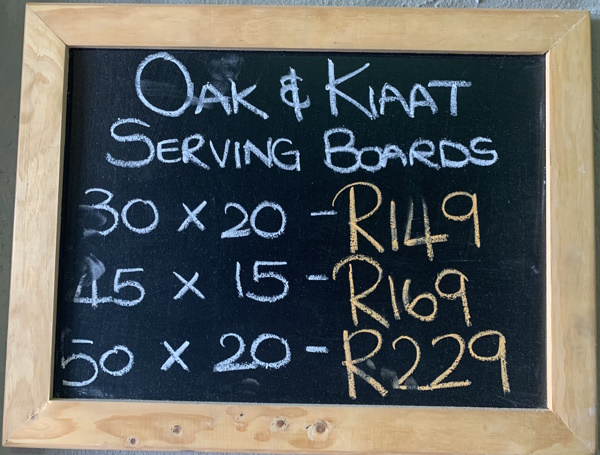 OAK & KIAAT
SERVING BOARDS
30 x 20 - R149
45 x 15 - R169
50 x 20 - R229